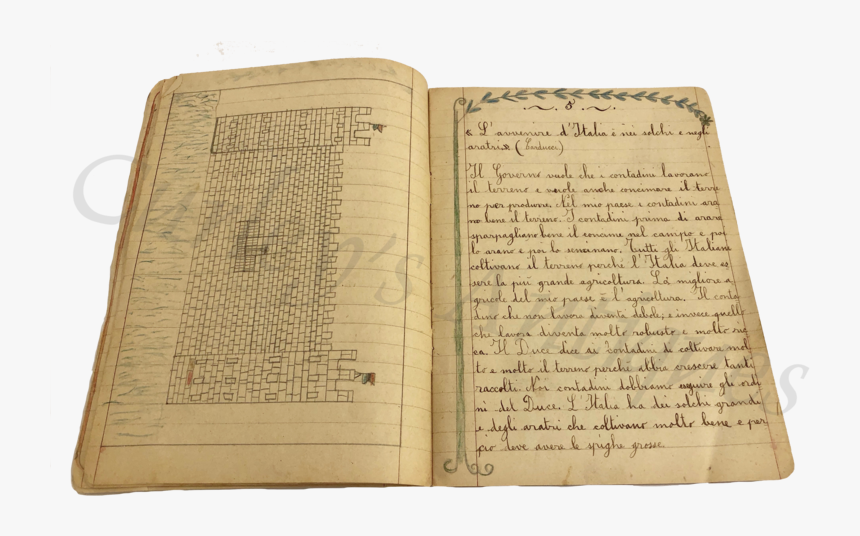 5
« L'avvenire d'Italia è nei solchi e negli
aratri » (Carducci)
Il Governo vuole che i contadini lavorano
il terreno e vuole anche concimare il terre
no per produrre. Nel mio paese i contadini ara
no bene il terreno. I contadini prima di arare
sparpagliano bene il concime nel campo e poi
lo arano e poi lo seminano. Tutti gli Italiani
coltivano il terreno perchè l'Italia deve es
sere la più grande agricoltura. La migliore a
gricole del mio paese è l'agricoltura. Il conta
dino che non lavora diventa debole, e invece quello
che lavora diventa molto robusto e molto
ca. Il Duce dice ai contadini di coltivare mol
to e molto il terreno perchè abbia crescere tanti
raccolti. Noi contadini dobbiamo seguire gli ordi
ni del Duce. L'Italia ha dei solchi grandi
e degli aratri che coltivano molto bene e per
ciò deve avere le spighe grosse.